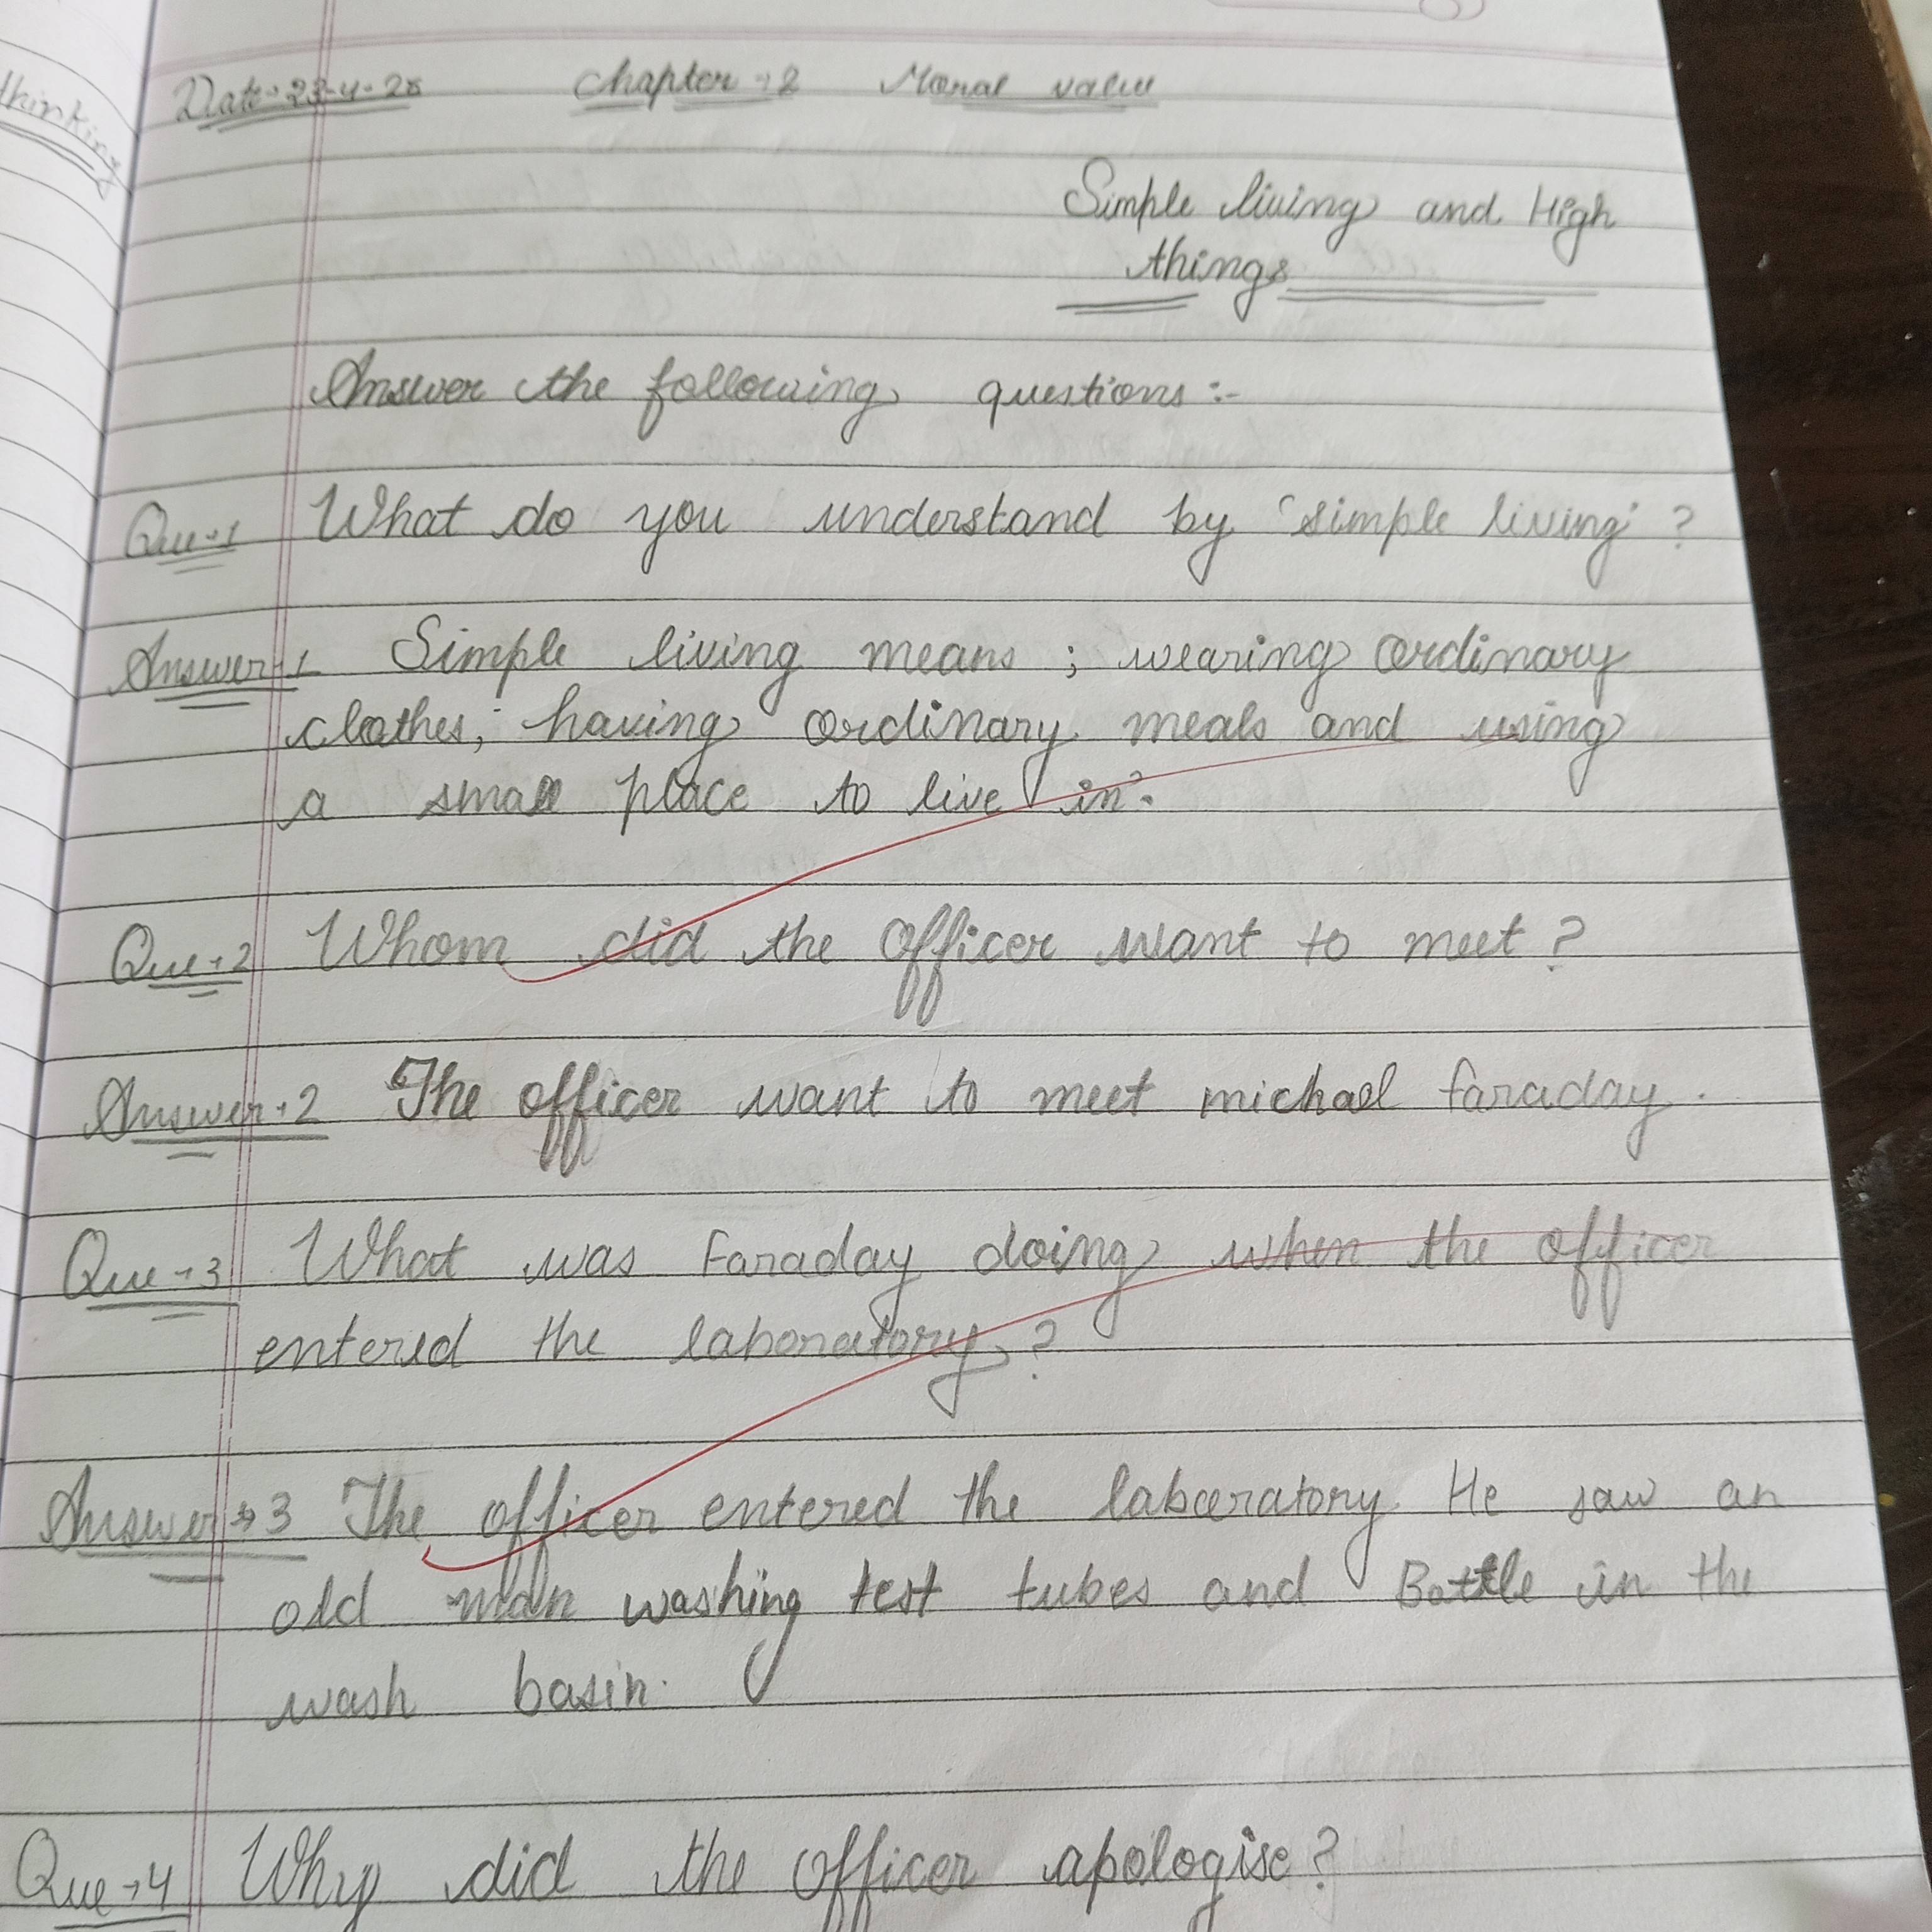 thinking
Date → 23-4-25 Chapter → 2 Moral value
Simple living and High
things
Answer the following questions :-
Que → 1 What do you understand by 'simple living' ?
Answer → 1 Simple living means ; wearing ordinary
clothes, having ordinary meals and using
a small place to live in.
Que → 2 Whom did the officer want to meet ?
Answer → 2 The officer want to meet michael faraday.
Que → 3 What was Faraday doing when the officer
entered the laboratory ?
Answer → 3 The officer entered the labaratory. He saw an
old man washing test tubes and Bottle in the
wash basin.
Que → 4 Why did the officer apologise ?